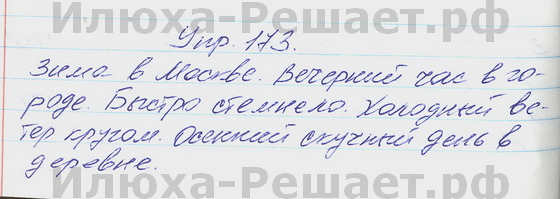 Илюха-Решает.рф
Упр. 173.
Зима в Москве. Вечерний час в го-
роде. Быстро стемнело. Холодный ве-
тер кругом. Осенний скучный день в
деревне.
Илюха-Решает.рф